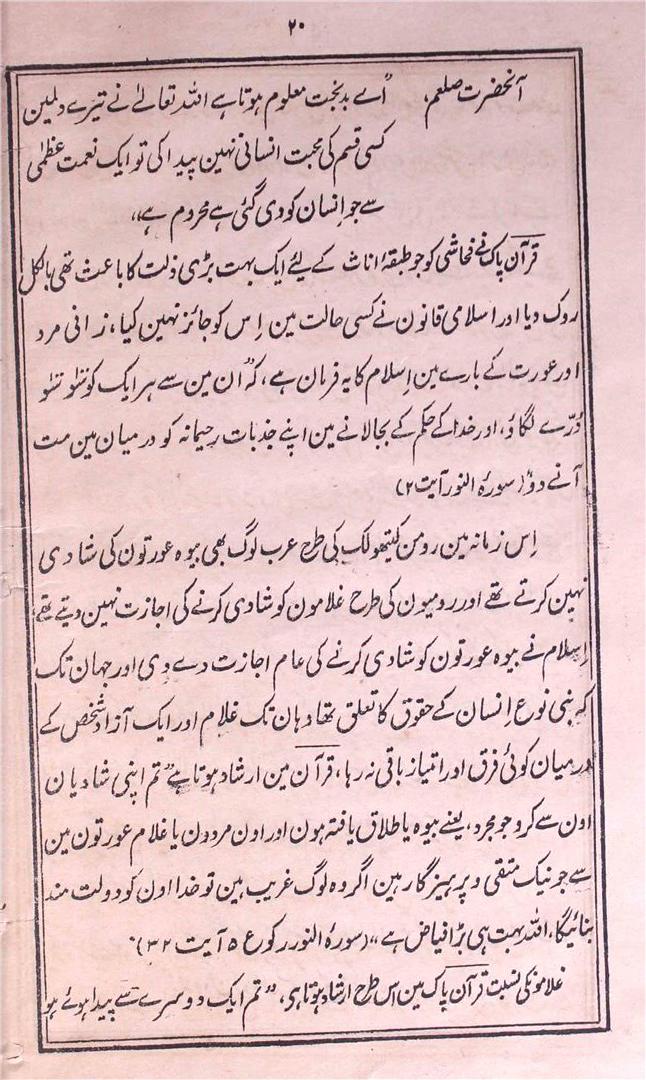 ۲۰
آنحضرت صلعم، "اے بدبخت معلوم ہوتا ہے اللہ تعالےٰ نے تیرے دلمین
کسی قسم کی محبت انسانی نہین پیدا کی تو ایک نعمت عظمٰی
سے جو اِنسان کو دی گئی ہے محروم ہے،،
قرآن پاک نے فحاشی کو جو طبقۂ اناث کے لیٔے ایک بہت بڑی ذلت کا باعث تھی بالکل
روک دیا اور اسلامی قانون نے کسی حالت مین اِس کو جائز نہین کیا، زانی مرد
اور عورت کے بارے مین اِسلام کا یہ فرمان ہے، کہ "ان مین سے ہر ایک کو سَو سَو
دُرّے لگاؤ، اور خدا کے حکم کے بجالانے مین اپنے جذبات رحیمانہ کو درمیان مین مت
آنے دو" (سورۂ النور آیت ۲)
اِس زمانہ مین رومن کیتھولک کی طرح عرب لوگ بھی بیوہ عورتون کی شادی
نہین کرتے تھے اور رومیون کی طرح غلامون کو شادی کرنے کی اجازت نہین دیتے تھے،
اِسلام نے بیوہ عورتون کو شادی کرنے کی عام اجازت دے دی اور جہان تک
کہ بنی نوع اِنسان کے حقوق کا تعلق تھا وہان تک غلام اور ایک آزاد شخص کے
درمیان کوئی فرق اور امتیاز باقی نہ رہا، قرآن مین ارشاد ہوتا ہے "تم اپنی شادیان
اون سے کرو جو مجرد، یعنے بیوہ یا طلاق یافتہ ہون اور اون مردون یا غلام عورتون مین
سے جو نیک متقی و پرہیزگار ہین اگر وہ لوگ غریب ہین تو خدا اون کو دولت مند
بنائیگا، اللہ بہت ہی بڑا فیاض ہے،، (سورۂ النور رکوع ۵ آیت ۳۲)۔
غلامونکی نسبت قرآن پاک مین اس طرح ارشاد ہوتا ہی، "تم ایک دوسرے سے پیدا ہوئے ہو